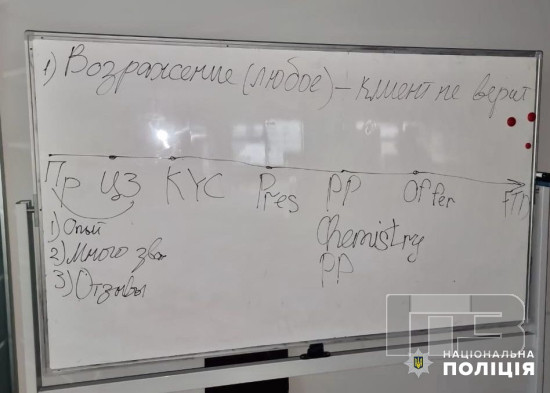 1) Возражение (любое) – клиент не верит
Пр ЦЗ KYC Pres PP Offer FTD
1) Опыт
2) Много зво
3) Отзывы
Chemistry
PP
ПЗ
НАЦІОНАЛЬНА
ПОЛІЦІЯ